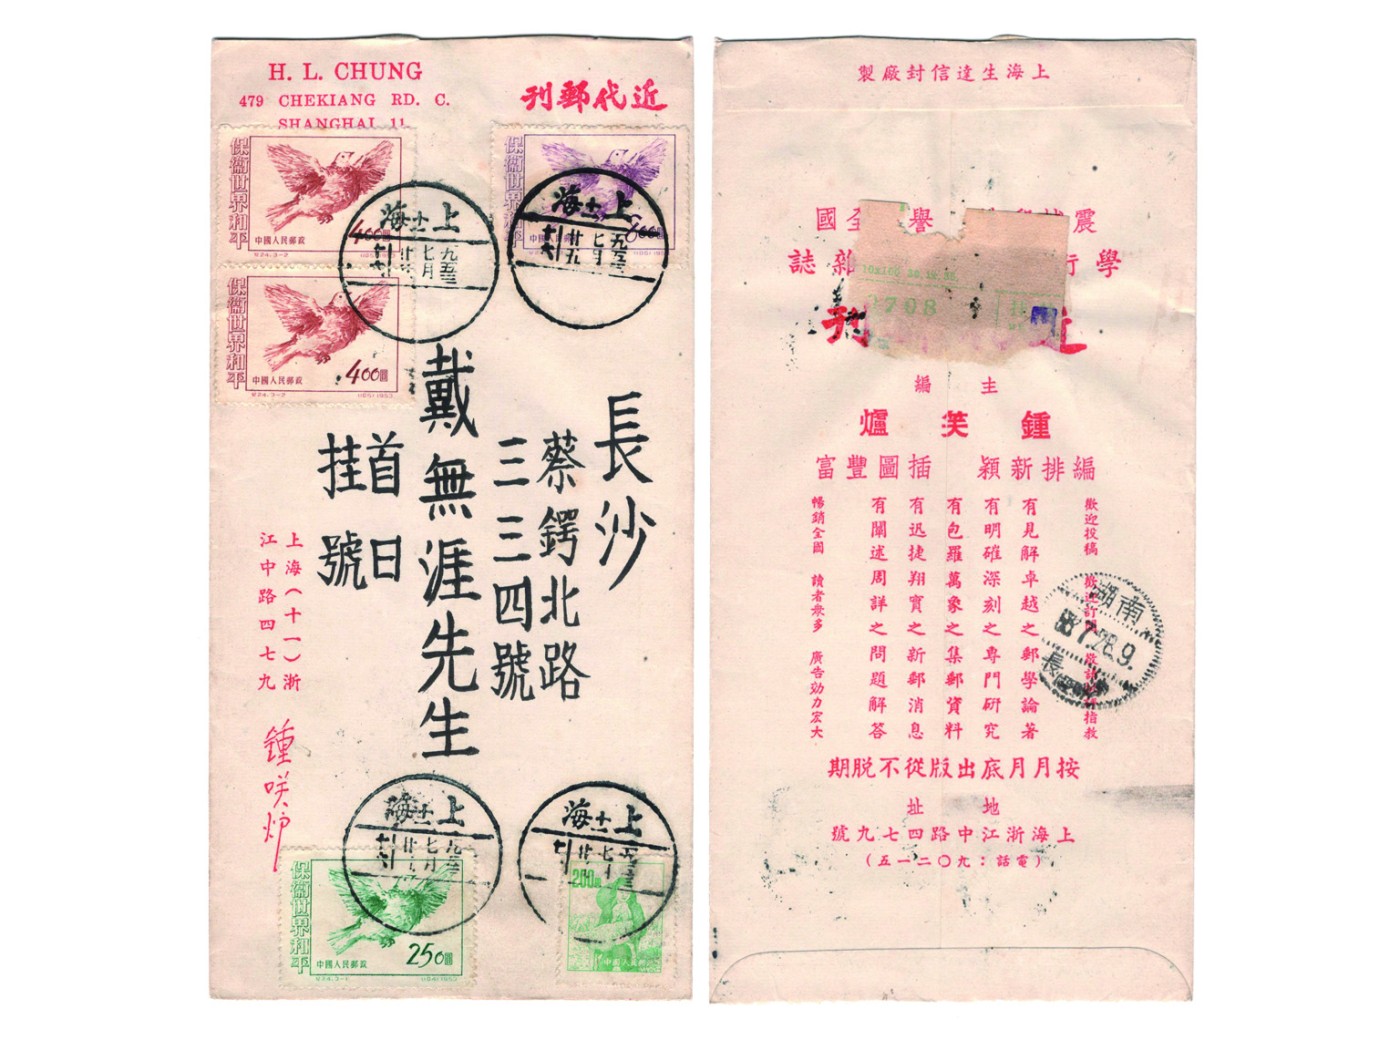 H. L. CHUNG
479 CHEKIANG RD. C.
SHANGHAI 11
近代郵刊
保衞世界和平
中國人民郵政
400圓
保衞世界和平
中國人民郵政
800圓
保衞世界和平
中國人民郵政
400圓
上海
十一
一九五三
七月
廿五
上海
十一
一九五三
七月
廿五
長沙
蔡鍔北路
三三四號
戴無涯先生
首日
挂號
上海(十一)浙
江中路四七九
鍾咲炉
上海
十一
一九五三
七月
上海
十一
七月
保衞世界和平
中國人民郵政
250圓
200圓
中國人民郵政
上海生達信封廠製
震 譽全國
學 雜誌
近 刊
708
主編
鍾笑爐
編排新穎 插圖豐富
歡迎投稿 歡迎訂閱 指教
有見解卓越之郵學論著
有明確深刻之專門研究
有包羅萬象之集郵資料
有迅捷翔實之新郵消息
有闡述周詳之問題解答
暢銷全國 讀者衆多 廣告効力宏大
湖南
長
按月月底出版從不脱期
地址
上海浙江中路四七九號
(電話:九〇二一五)